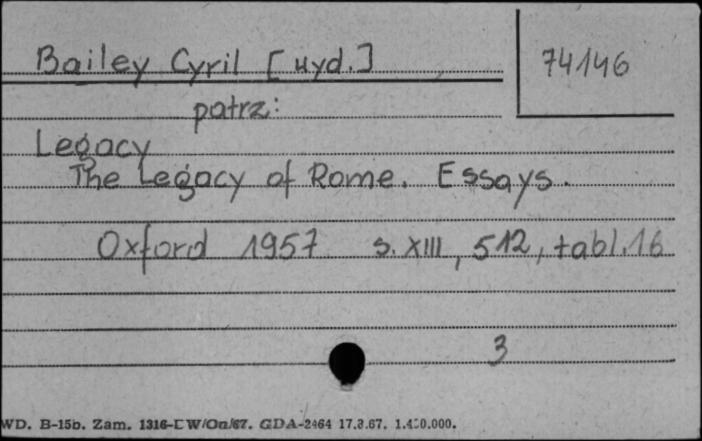 Bailey Cyril [wyd.]
74146
patrz:
Legacy
The Legacy of Rome. Essays.
Oxford 1957 s. XIII, 512, tabl. 16
3
WD. B-15b. Zam. 1316-DW/Oa/67. GDA-2464 17.3.67. 1.400.000.